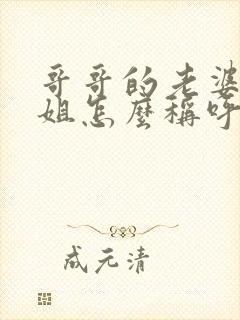 哥哥的老婆
姐怎麼稱呼
成元清